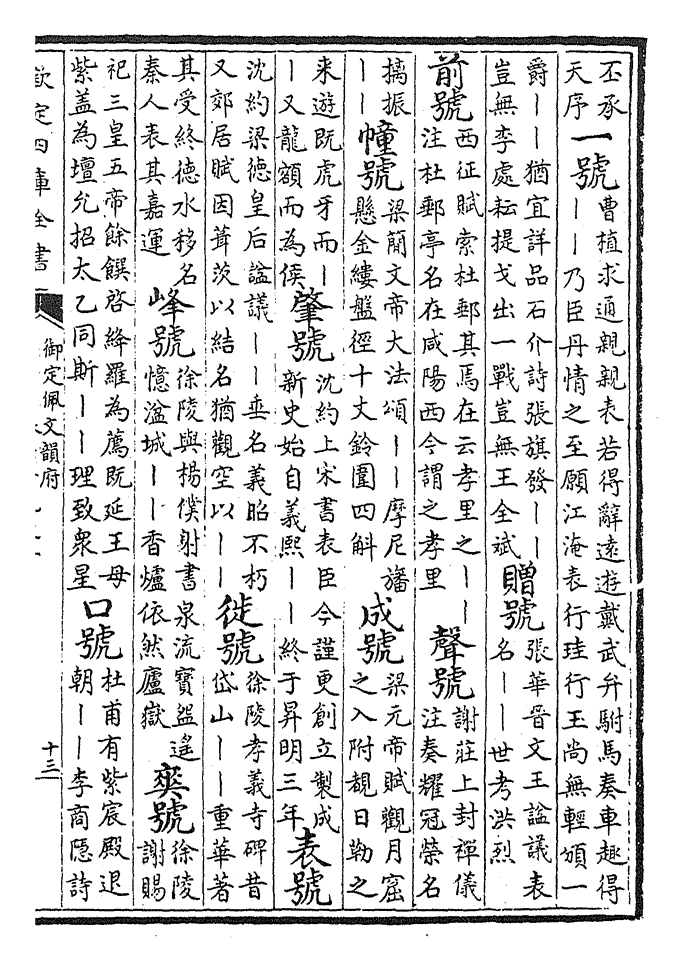 丕承
天序
一號
曹植求通親親表若得辭遠遊戴武弁駙馬奏車趣得
丨丨乃臣丹情之至願江淹表行珪行玉尚無輕頒一
爵丨丨猶宜詳品石介詩張旗發丨丨
豈無李處耘提戈出一戰豈無王全斌
贈號
張華晉文王諡議表
名丨丨世考洪烈
前號
西征賦索杜郵其焉在云孝里之丨丨
注杜郵亭名在咸陽西今謂之孝里
聲號
謝莊上封禪儀
注奏耀冠榮名
摛振
丨丨
幢號
梁簡文帝大法頌丨丨摩尼旛
懸金縷盤徑十丈鈴圍四斛
成號
梁元帝賦觀月窟
之入附覩日勒之
来遊既虎牙而丨
丨又龍額而為侯
肇號
沈約上宋書表臣今謹更創立製成
新史始自義熙丨丨終于昇明三年
表號
沈約梁德皇后諡議丨丨垂名義昭不朽
又郊居賦因葺茨以結名猶觀空以丨丨
徙號
徐陵孝義寺碑昔
岱山丨丨重華著
其受終德水移名
秦人表其嘉運
峰號
徐陵與楊僕射書泉流寶盌遙
憶湓城丨丨香爐依然廬嶽
爽號
徐陵
謝賜
祀三皇五帝餘饌啓絳羅為薦既延王母
紫盖為壇允招太乙同斯丨丨理致衆星
口號
杜甫有紫宸殿退
朝丨丨李商隱詩
欽定四庫全書
御定佩文韻府
十三